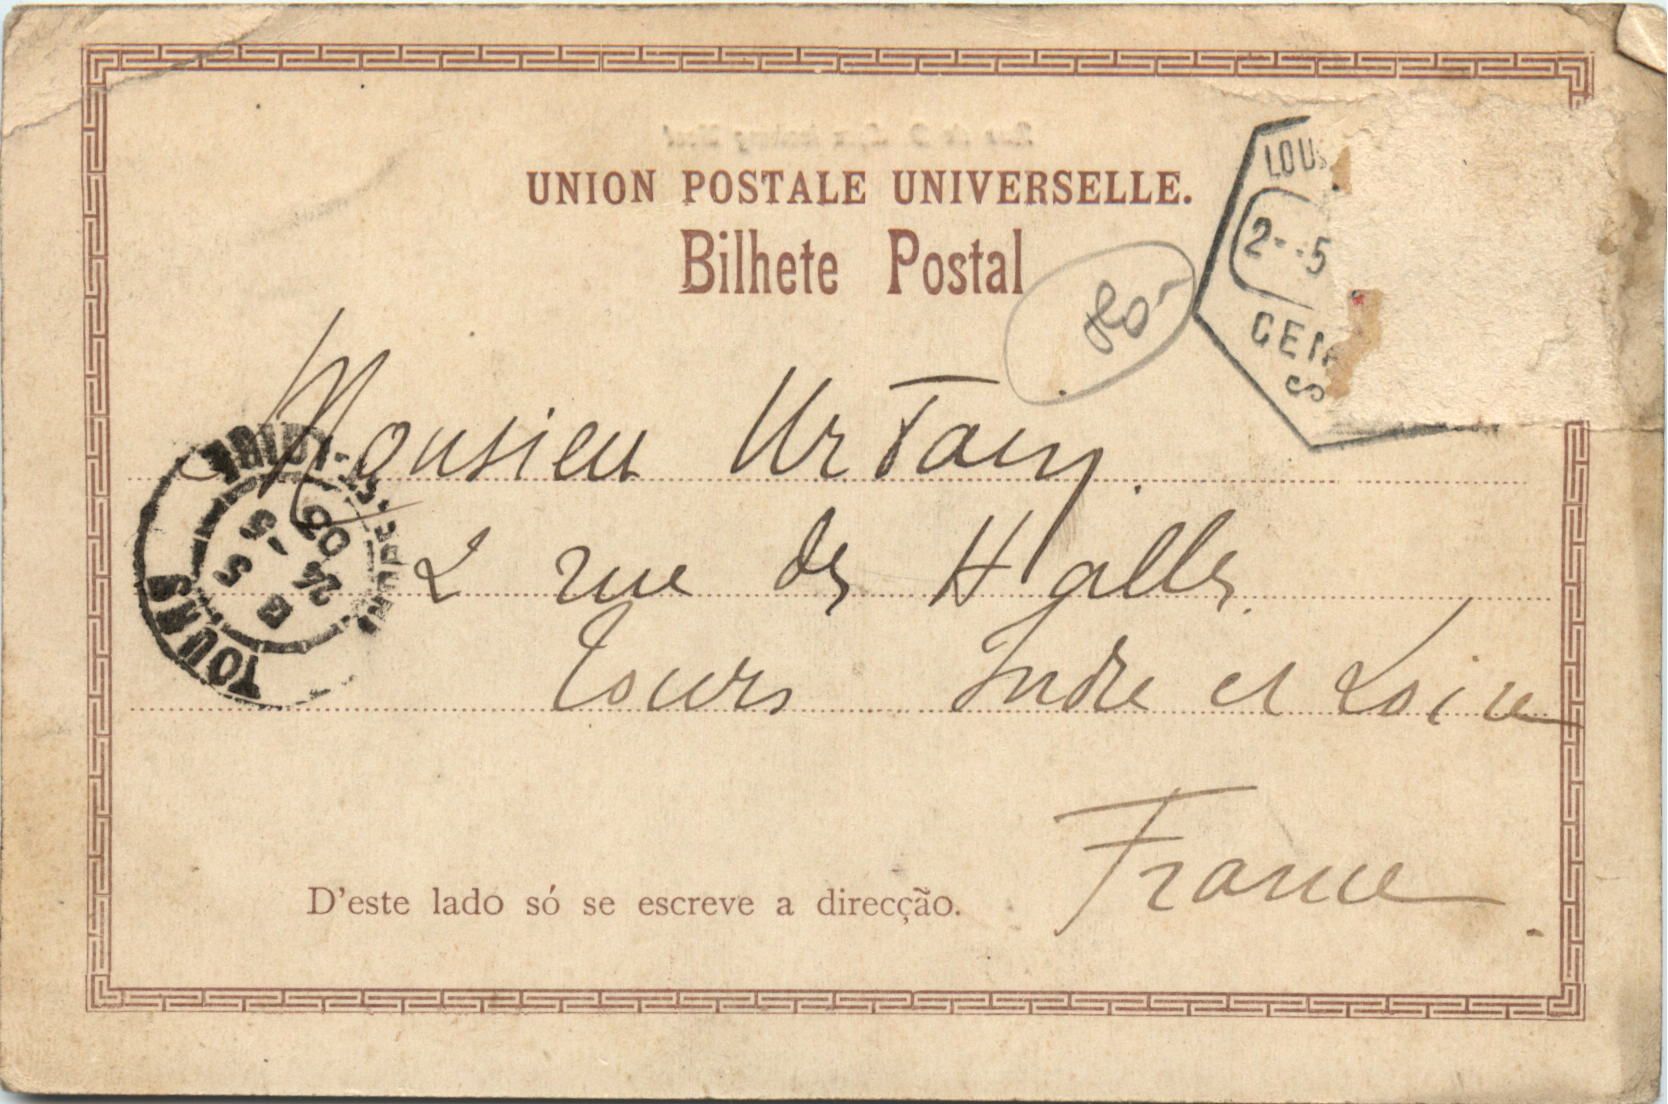 UNION POSTALE UNIVERSELLE.
Bilhete Postal
LOUS
2--5
CEN
S
80-
Monsieur Urtain.
2 rue des Halles.
Tours Indre et Loire
France
TOURS
INDRE-ET-LOIRE
5 -5
24 06
D'este lado só se escreve a direcção.